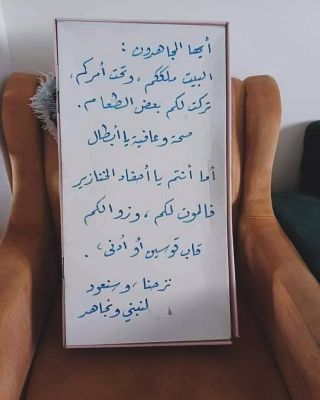 أيها المجاهدون :
البيت ملككم ، وتحت أمركم ،
تركت لكم بعض الطعام .
صحة وعافية يا أبطال
أما أنتم يا أحفاد الخنازير
فالموت لكم ، وزوالكم
قاب قوسين أو أدنى .
نزحنا ، وسنعود
لنبني ونجاهد